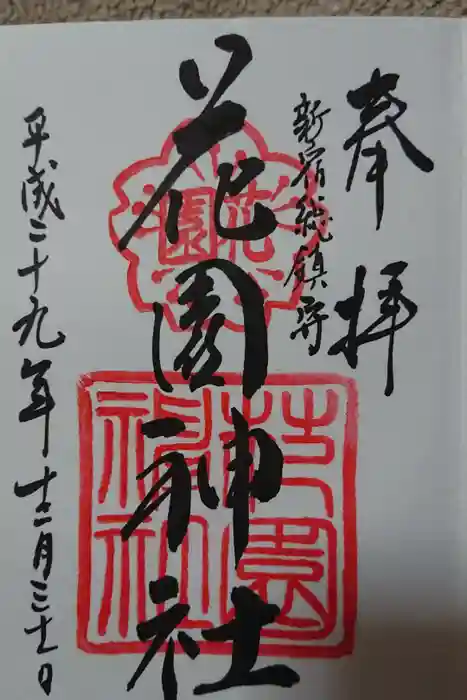 奉拝
新宿総鎮守
花園神社
平成二十九年十二月三十一日
花園
花園
神社